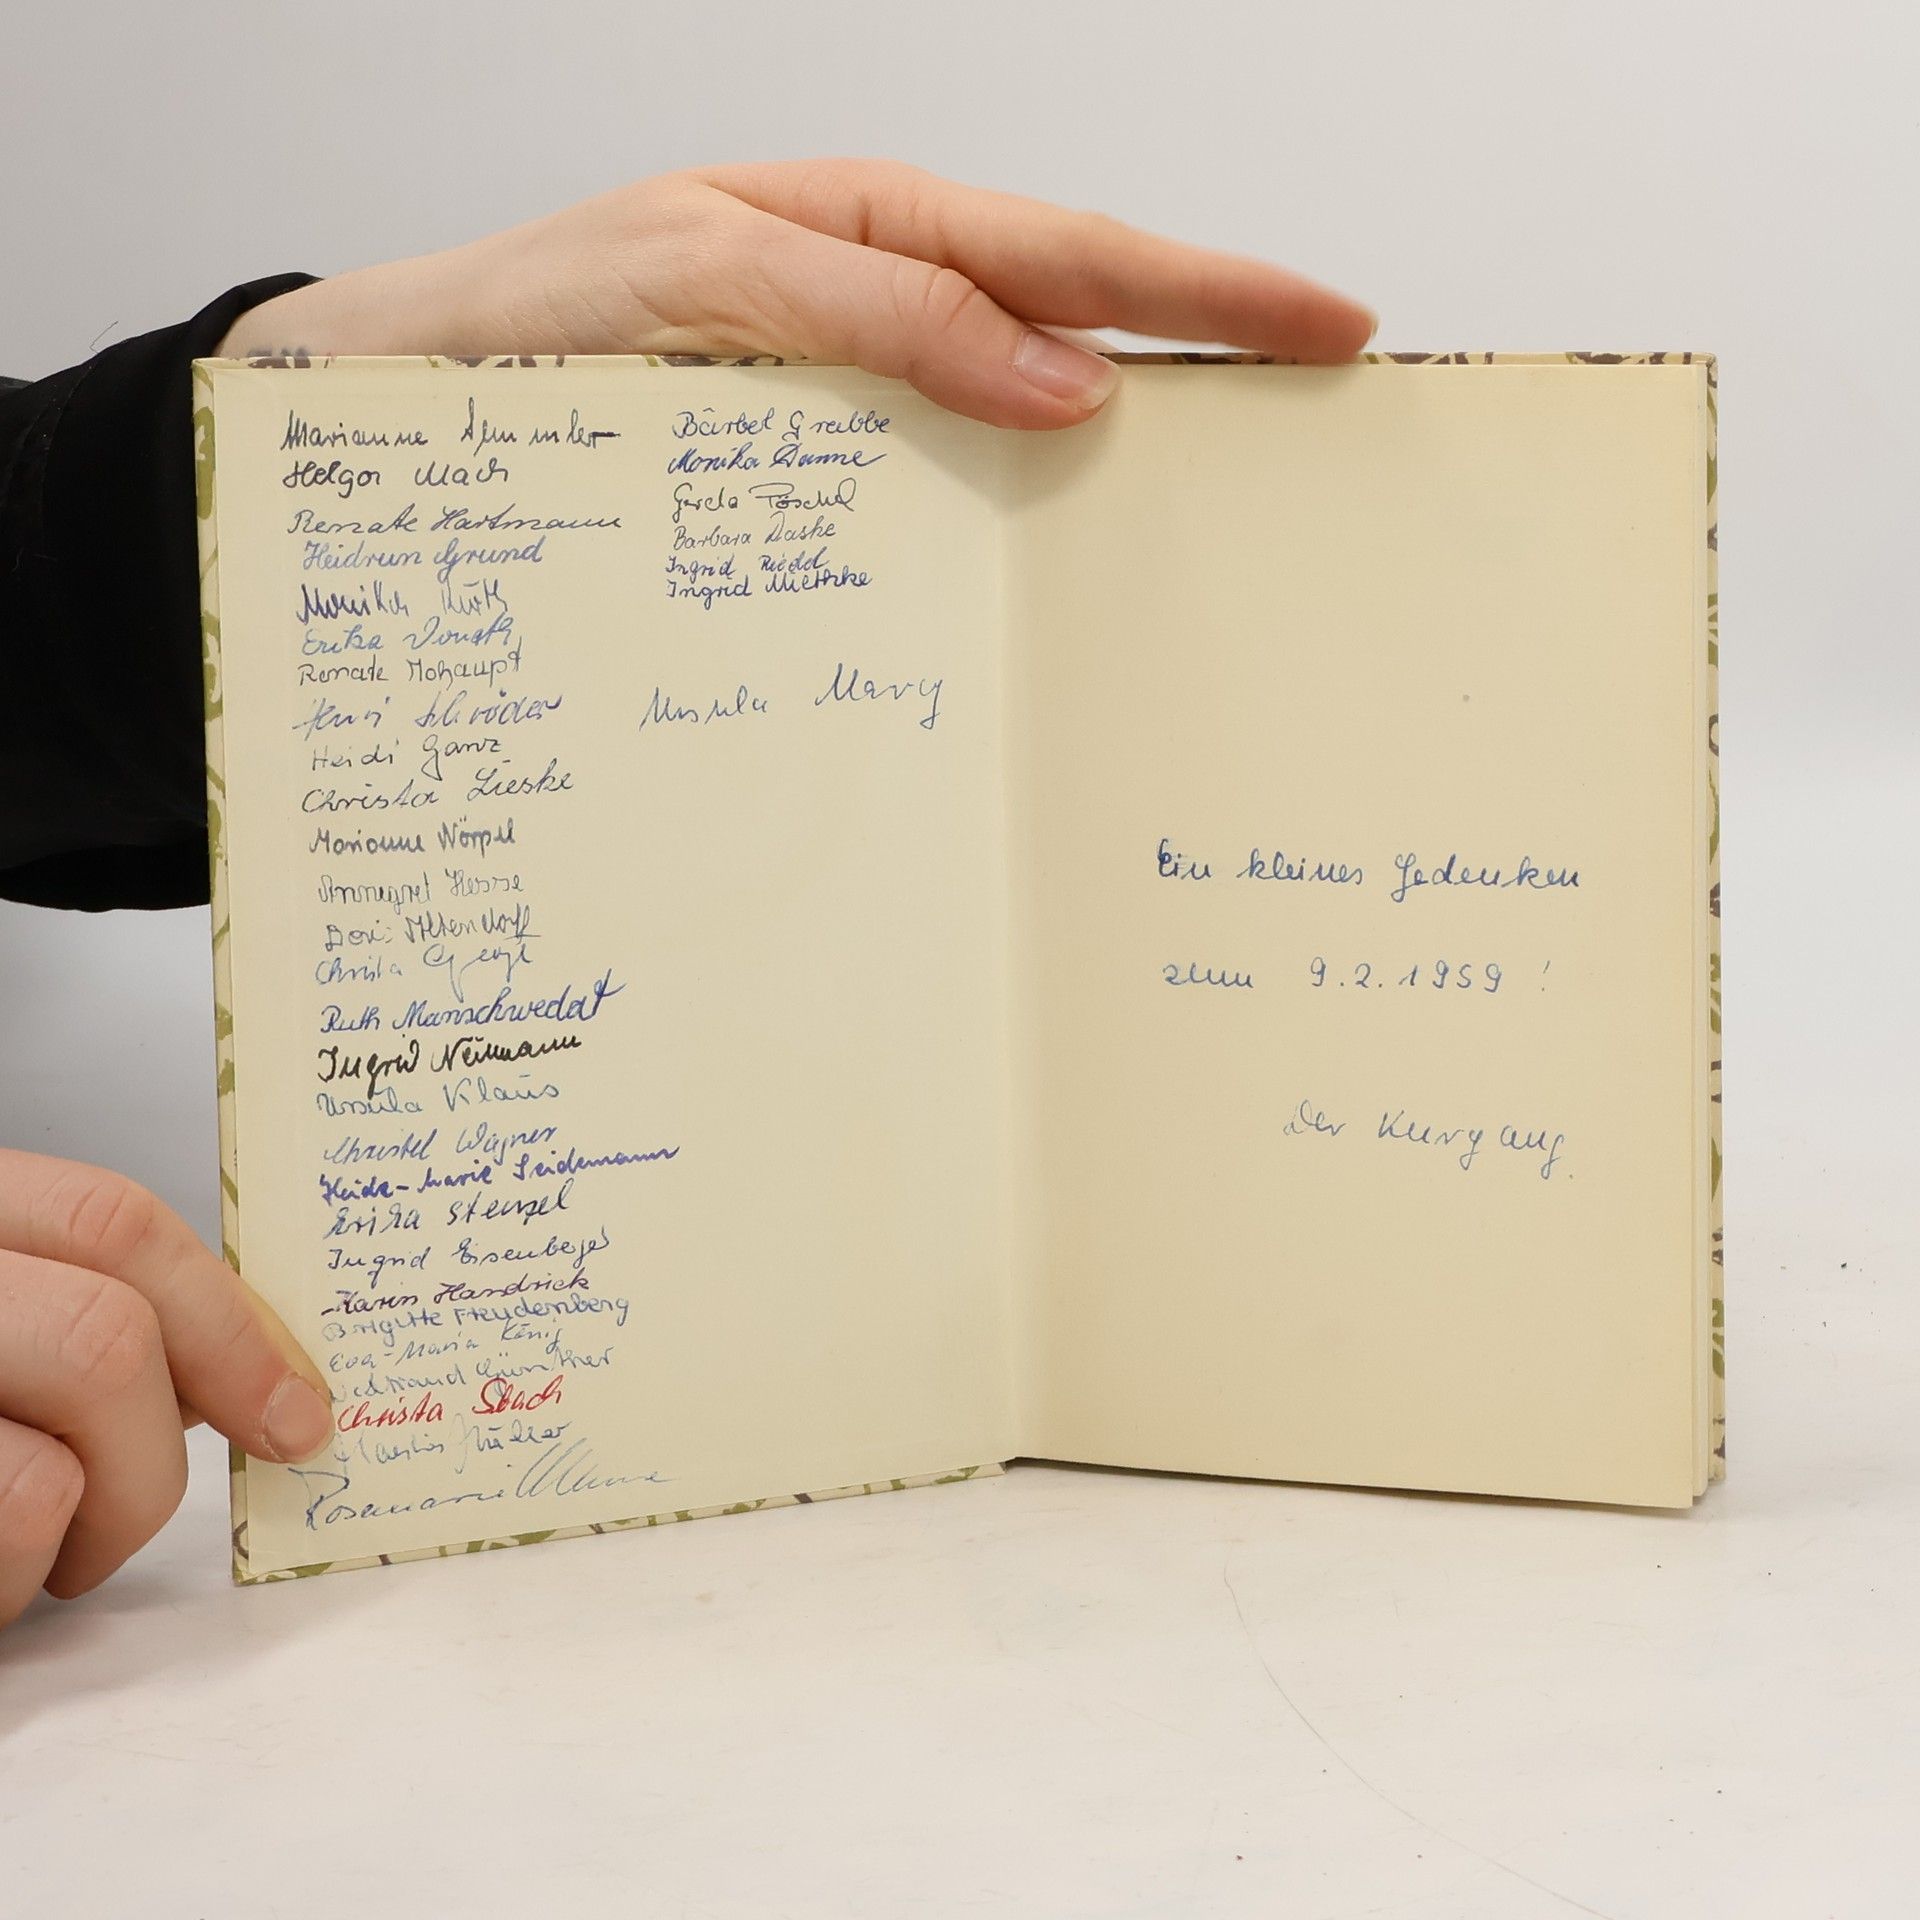 Marianne Semmler
Helga Mach
Renate Hartmann
Heidrun Grund
Monika
Erika Donath
Renate Mohaupt
Schröder
Heidi Ganz
Christa Lieske
Marianne Nörpel
Annegret Hesse
Doris Altendorff
Christa
Ruth Manschwedat
Ingrid Neumann
Ursula Klaus
Christel Wagner
Heide-Marie Seidemann
Erika Stenzel
Ingrid Eisenberger
Karin Handrick
Brigitte Freudenberg
Eva-Maria König
Günther
Christa
Müller
Rosemarie
Bärbel Grabbe
Monika Danne
Gerda Pöschel
Barbara Daske
Ingrid Riedel
Ingrid Miethke
Ursula
Ein kleines Gedenken
zum 9.2.1959!
Der Kurzgang.